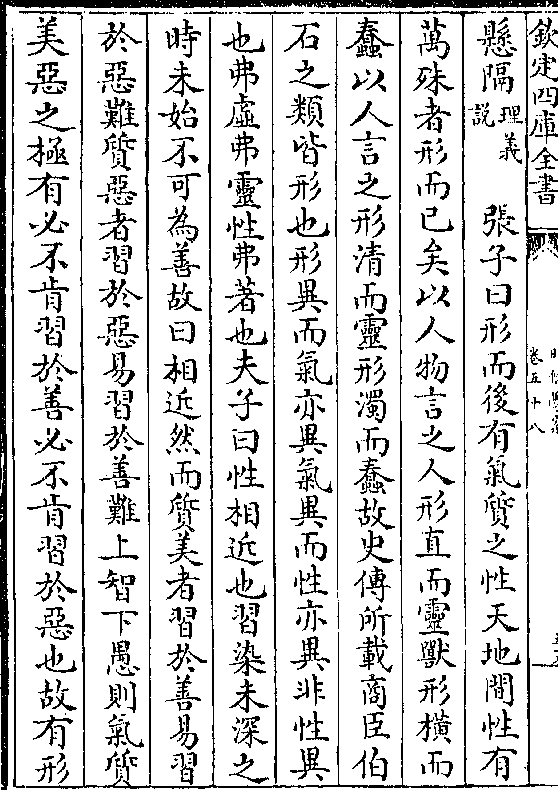 欽定四庫全書
卷五十八
懸隔理義説　張子曰形而後有氣質之性天地間性有
萬殊者形而已矣以人物言之人形直而靈獸形橫而
蠢以人言之形清而靈形濁而蠢故史傳所載商臣伯
石之類皆形也形異而氣亦異氣異而性亦異非性異
也弗虛弗靈性弗著也夫子曰性相近也習染未深之
時未始不可為善故曰相近然而質美者習於善易習
於惡難質惡者習於惡易習於善難上智下愚則氣質
美惡之極有必不肯習於善必不肯習於惡也故有形